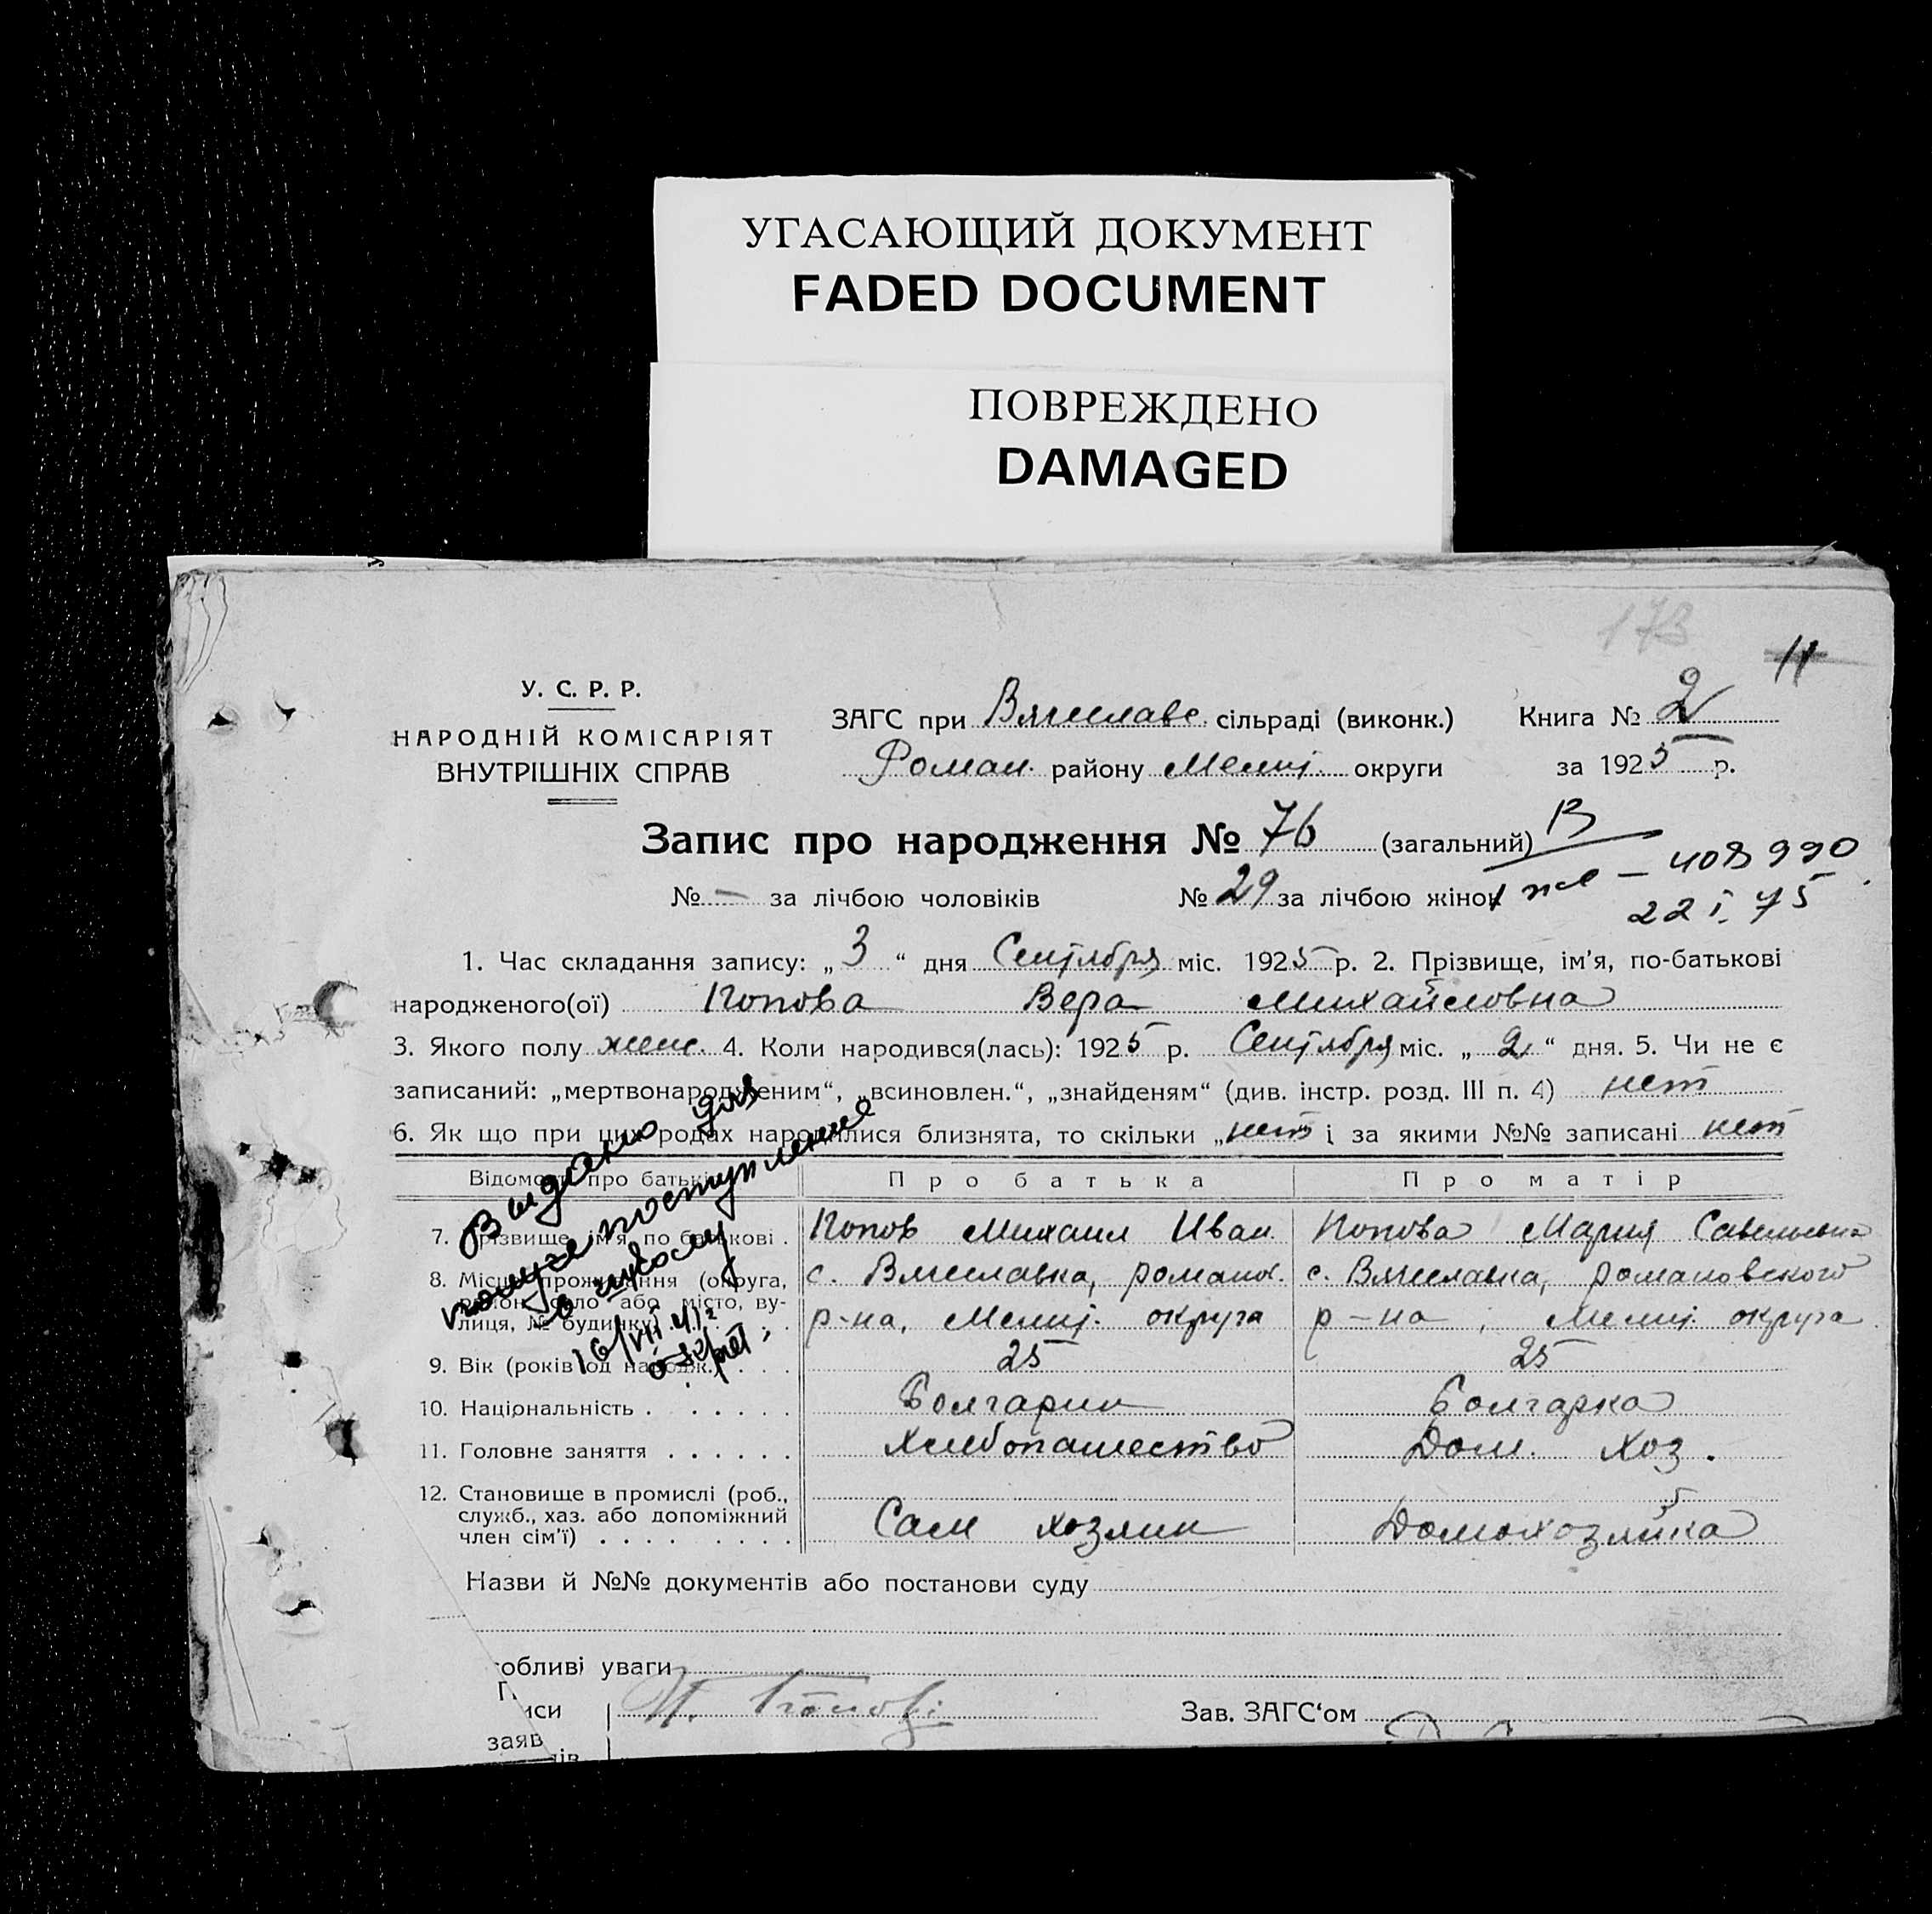 УГАСАЮЩИЙ ДОКУМЕНТ
FADED DOCUMENT
ПОВРЕЖДЕНО
DAMAGED
173
11
У. С. Р. Р.
НАРОДНІЙ КОМІСАРІЯТ
ВНУТРІШНІХ СПРАВ
ЗАГС при Вячеславс. сільраді (виконк.) Книга № 2
Роман. району Меліт. округи за 1925 р.
Запис про народження № 76 (загальний)
№ — за лічбою чоловіків № 29 за лічбою жінок
– 408990
22 I. 75
1. Час складання запису: „3“ дня Сентября міс. 1925 р. 2. Прізвище, ім'я, по-батькові
народженого(ої) Попова Вера Михайловна
3. Якого полу женс. 4. Коли народився(лась): 1925 р. Сентября міс. „2“ дня. 5. Чи не є
записаний: „мертвонародженим“, „всиновлен.“, „знайденям“ (див. інстр. розд. III п. 4) нет
6. Як що при цих родах народилися близнята, то скільки „нет“ і за якими №№ записані нет
Відомости про батьків Про батька Про матір
7. Прізвище, ім'я, по батькові . Попов Михаил Иван. Попова Мария Савельевна
8. Місце проживання (округа, с. Вячеславка, романов. с. Вячеславка, романовского
район, село або місто, ву-
лиця, № будинку) р-на, Мелит. округа р-на, Мелит. округа
9. Вік (років од народж.) . . . 25 25
10. Національність . . . . . . Болгарин Болгарка
11. Головне заняття . . . . . . Хлебопашество Дом. хоз.
12. Становище в промислі (роб.,
служб., хаз. або допоміжний
член сім'ї) . . . . . . . . Сам хозяин Домохозяйка
Видано для
поступления
в школу
16/VII 41г
Назви й №№ документів або постанови суду
обливі уваги
иси
заяв
ів
Попов
Зав. ЗАГС'ом